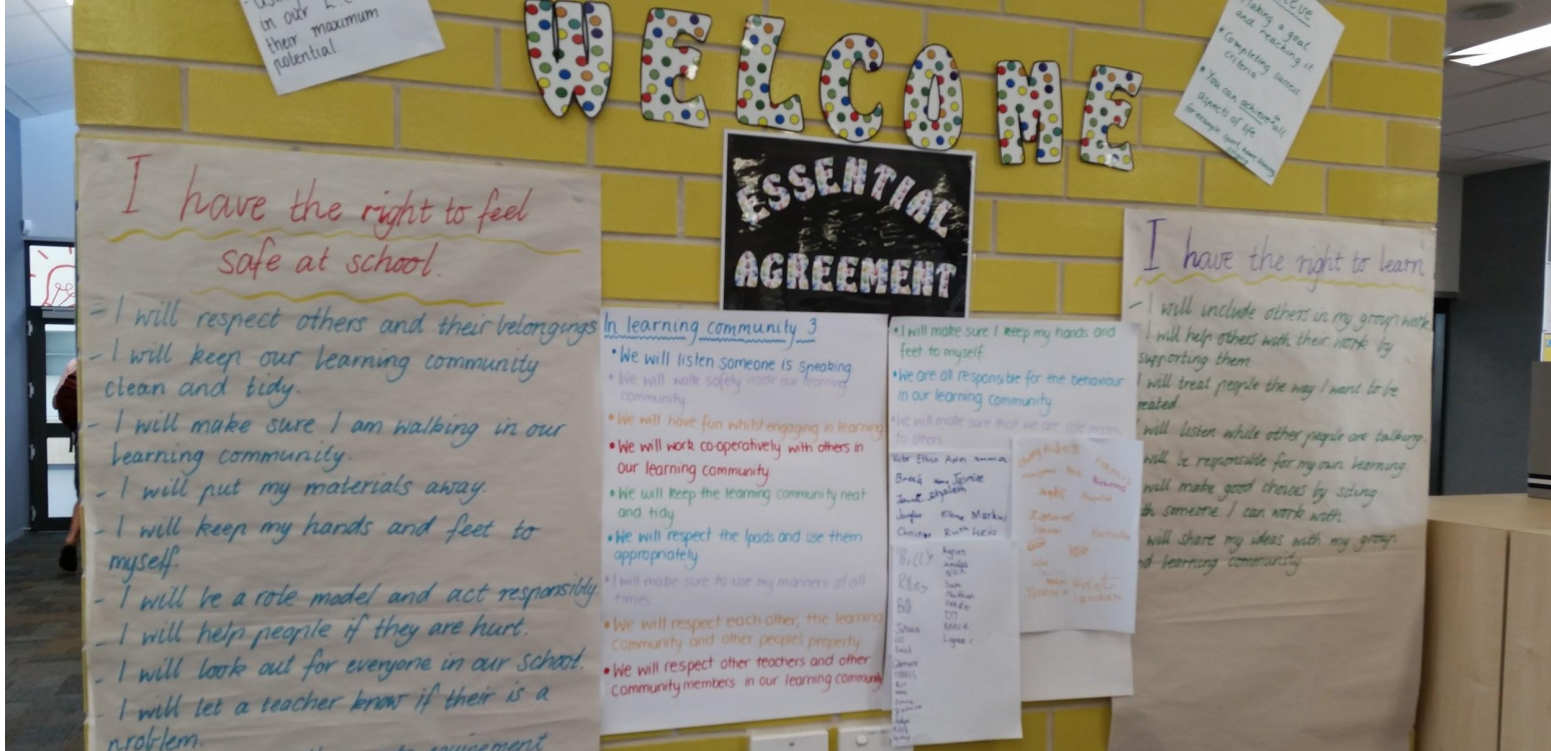 in our
their maximum
potential.
WELCOME
ieve
Making a goal
and reaching it
• Completing success
criteria
• You can achieve in all
aspects of life
for example sport, home, learning
ESSENTIAL
AGREEMENT
I have the right to feel
safe at school.
- I will respect others and their belongings
- I will keep our learning community
clean and tidy.
- I will make sure I am walking in our
learning community.
- I will put my materials away.
- I will keep my hands and feet to
myself.
- I will be a role model and act responsibly.
- I will help people if they are hurt.
- I will look out for everyone in our school.
- I will let a teacher know if their is a
problem.
equipement
In learning community 3
• We will listen someone is speaking
• We will walk safely inside our learning
community
• We will have fun whilst engaging in learning
• We will work co-operatively with others in
our learning community
• We will keep the learning community neat
and tidy
• We will respect the Ipads and use them
appropriately
• I will make sure to use my manners at all
times
• We will respect each other, the learning
community and other people's property
• We will respect other teachers and other
community members in our learning community
• I will make sure I keep my hands and
feet to myself
• We are all responsible for the behaviour
in our learning community
• We will make sure that we are role models
to others
Victor Ethan emma
Jasmine
Elizabeth
Markus
Christian Ruth
BiLLY
Riley
Nich
Sam
Nathan
DJ
REECE
Jordan
I have the right to learn
- I will include others in my group work
I will help others with their work by
supporting them
I will treat people the way I want to be
reated.
will listen while other people are talking.
will be responsible for my own learning
will make good choices by siting
th someone I can work with.
will share my ideas with my group
nd learning community